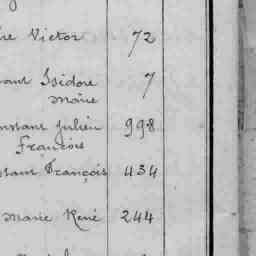 re Victor 72
ant Isidore 7
Marie
nstant Julien 998
François
stant François 434
Marie René 244